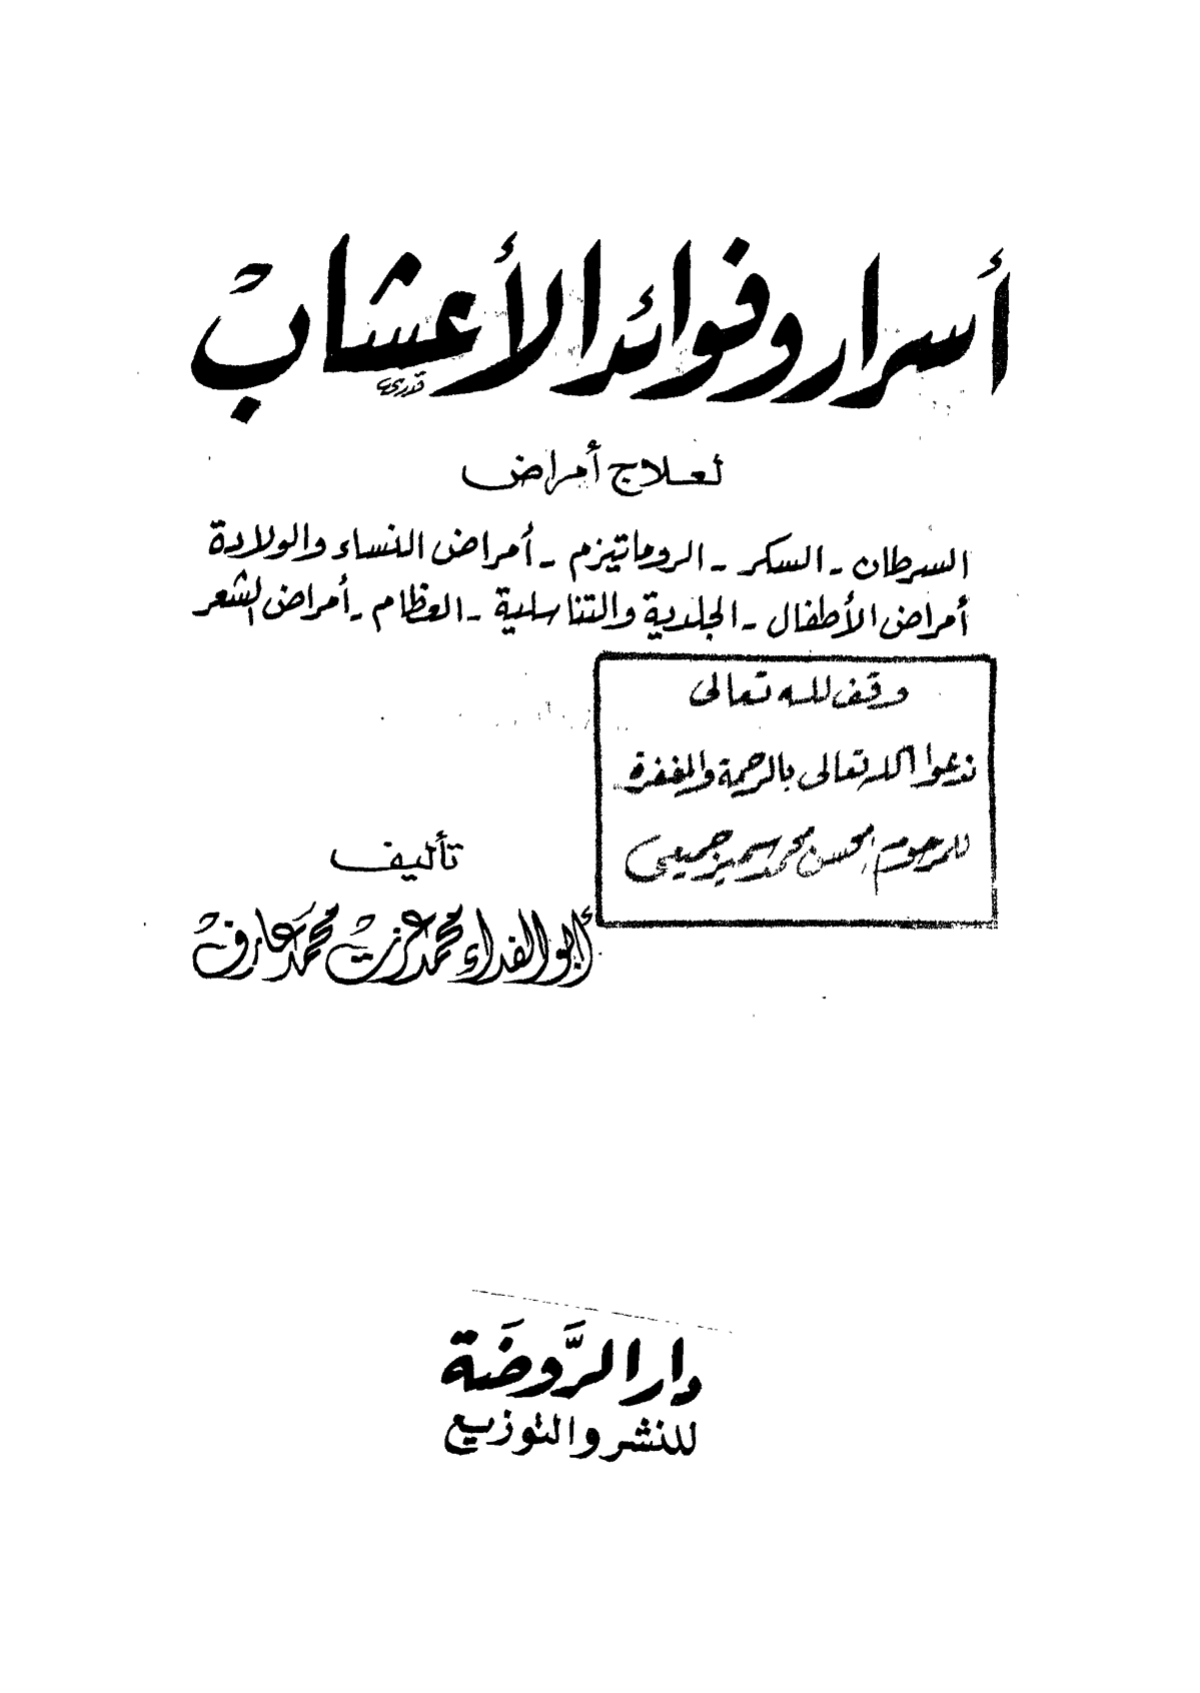 أسرار وفوائد الأعشاب
قدري
لعلاج أمراض
السرطان - السكر - الروماتيزم - أمراض النساء والولادة
أمراض الأطفال - الجلدية والتناسلية - العظام - أمراض الشعر
وقف لله تعالى
ندعوا الله تعالى بالرحمة والمغفرة
للمرحوم محسن محمد سمير جميعي
تأليف
أبو الفداء محمد عزت محمد عارف
دار الرَّوضَة
للنشر والتوزيع